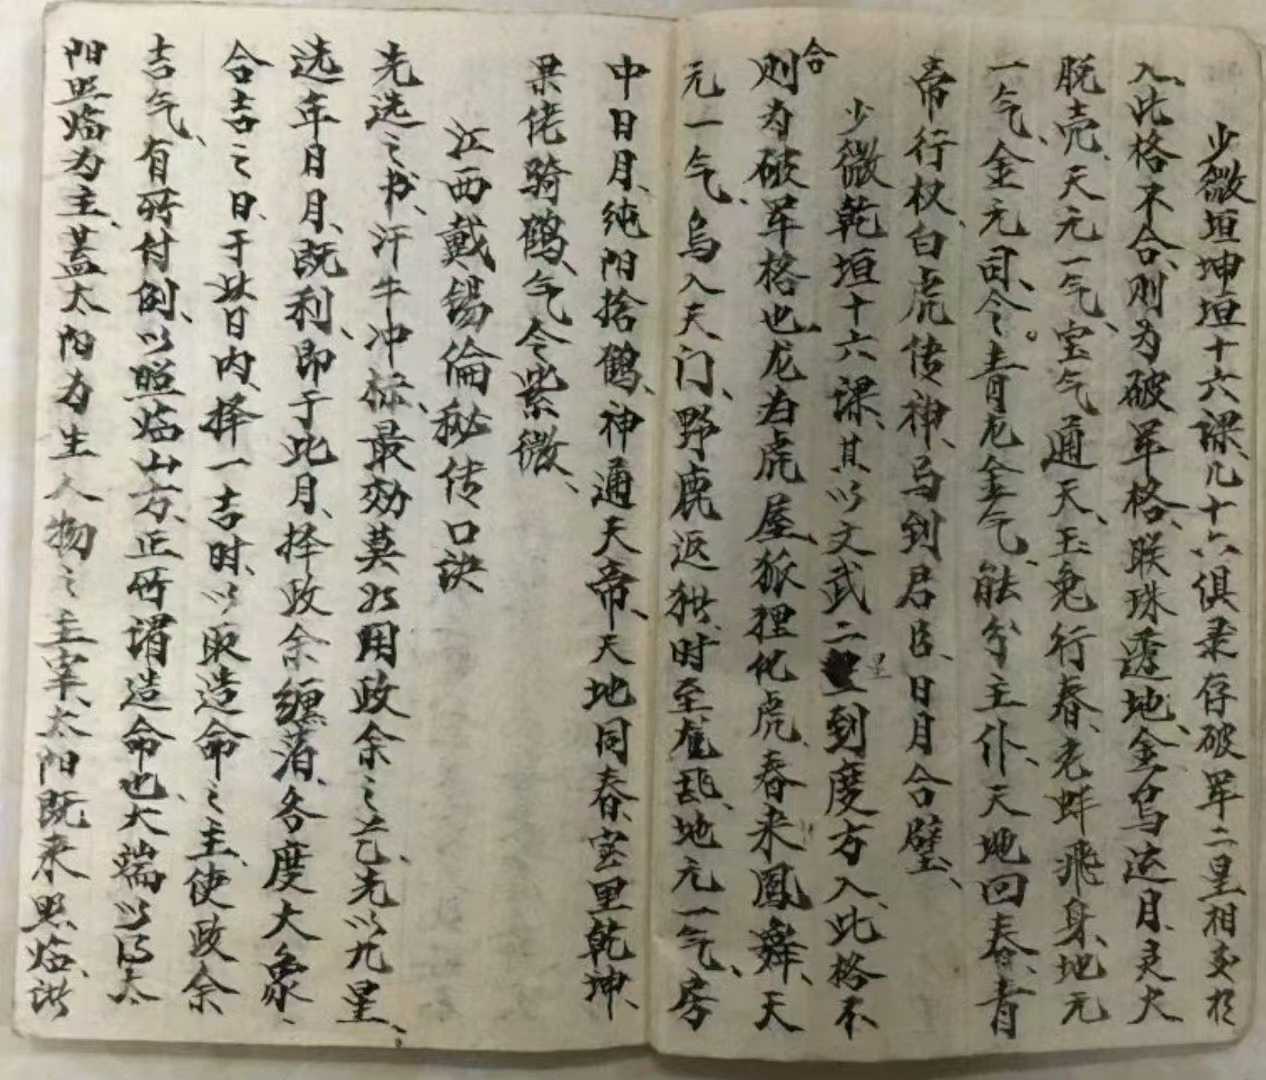 少微垣坤垣十六课、凡十六俱录存破军二星相交于
入此格、不合、则为破军格、联珠透地、金乌运月、灵犬
脱壳、天元一气、宝气通天、玉兔行春、老蚌飛身、地元
一气、金元司令。青龙金气、能分主仆、天地回春、青
帝行权、白虎传神、马到君臣、日月合璧、
少微乾垣十六课、其以文武二星到度方入、此格不
合则为破军格也、龙为虎屋、狐狸化虎、春来凤舞、天
元一气、乌入天门、野鹿返、时至、地元一气、房
中日月、纯阳捨鹤、神通天帝、天地同春、壶里乾坤、
果佬骑鹤、气令紫微、
江西戴锡倫秘传口诀
先选之书、汗牛冲标、最効莫如用政余之艺、先以九星、
选年日月、既利、即于此月、择政余缠落、各度大象、
合吉之日、于此日内、择一吉时、以取造命之主、使政余
吉气、有所付倒、以照临山方、正所谓造命也、大端以得太
阳照临为主、蓋太阳为生人物之主宰、太阳既来照临、